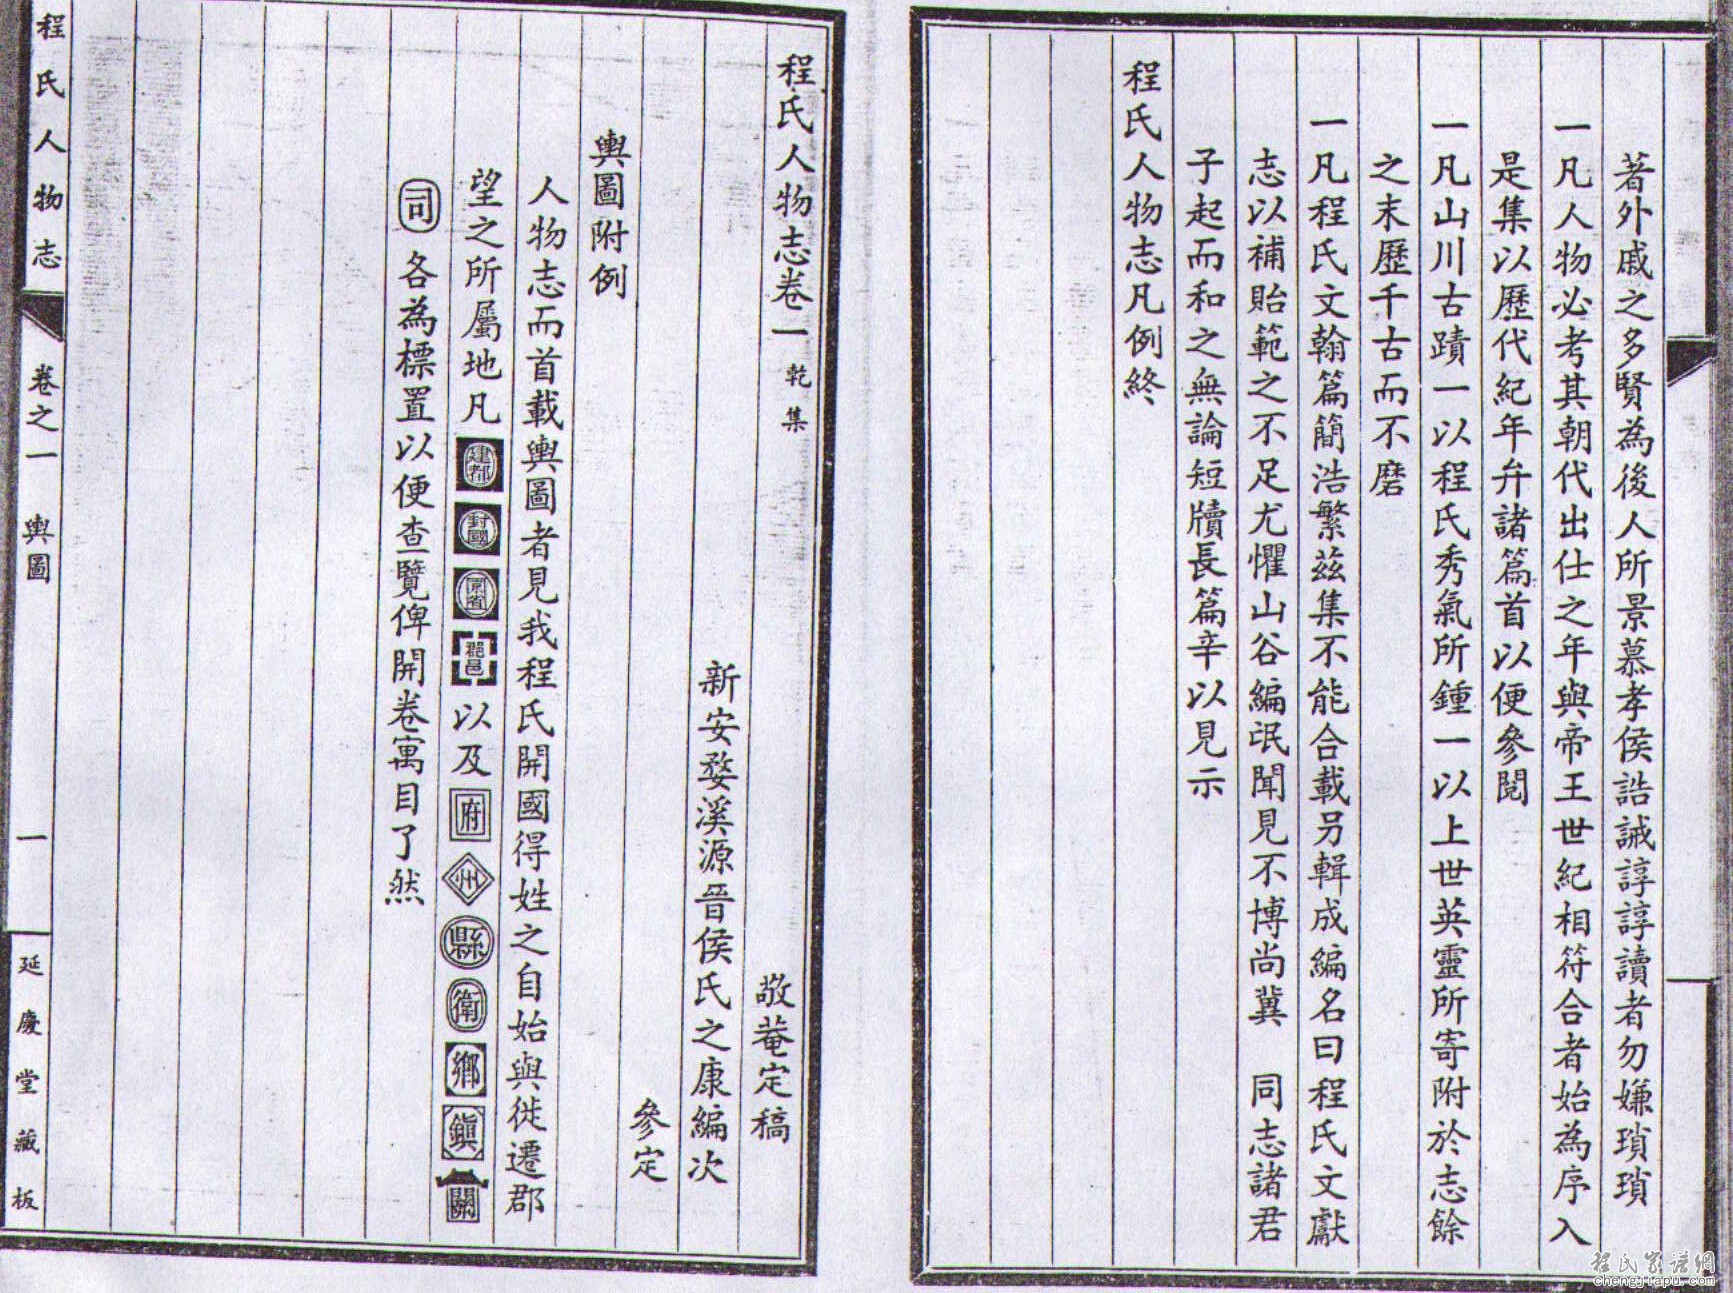 著外戚之多賢為後人所景慕孝侯誥誡諄諄讀者勿嫌瑣瑣
一凡人物必考其朝代出仕之年與帝王世紀相符合者始為序入
是集以歷代紀年弁諸篇首以便參閱
一凡山川古蹟一以程氏秀氣所鍾一以上世英靈所寄附於志餘
之末歷千古而不磨
一凡程氏文翰篇簡浩繁茲集不能合載另輯成編名曰程氏文獻
志以補貽範之不足尤懼山谷編氓聞見不博尚冀　同志諸君
子起而和之無論短牘長篇辛以見示
程氏人物志凡例終
程氏人物志卷一 乾集
敬菴定稿
新安婺溪源晉侯氏之康編次
參定
輿圖附例
人物志而首載輿圖者見我程氏開國得姓之自始與徙遷郡
望之所屬地凡建都封國京省郡邑以及府州縣衛鄉鎮關
司各為標置以便查覽俾開卷寓目了然
程氏人物志
卷之一 輿圖
一
延慶堂藏板
程氏家谱網
chengjiapu.com